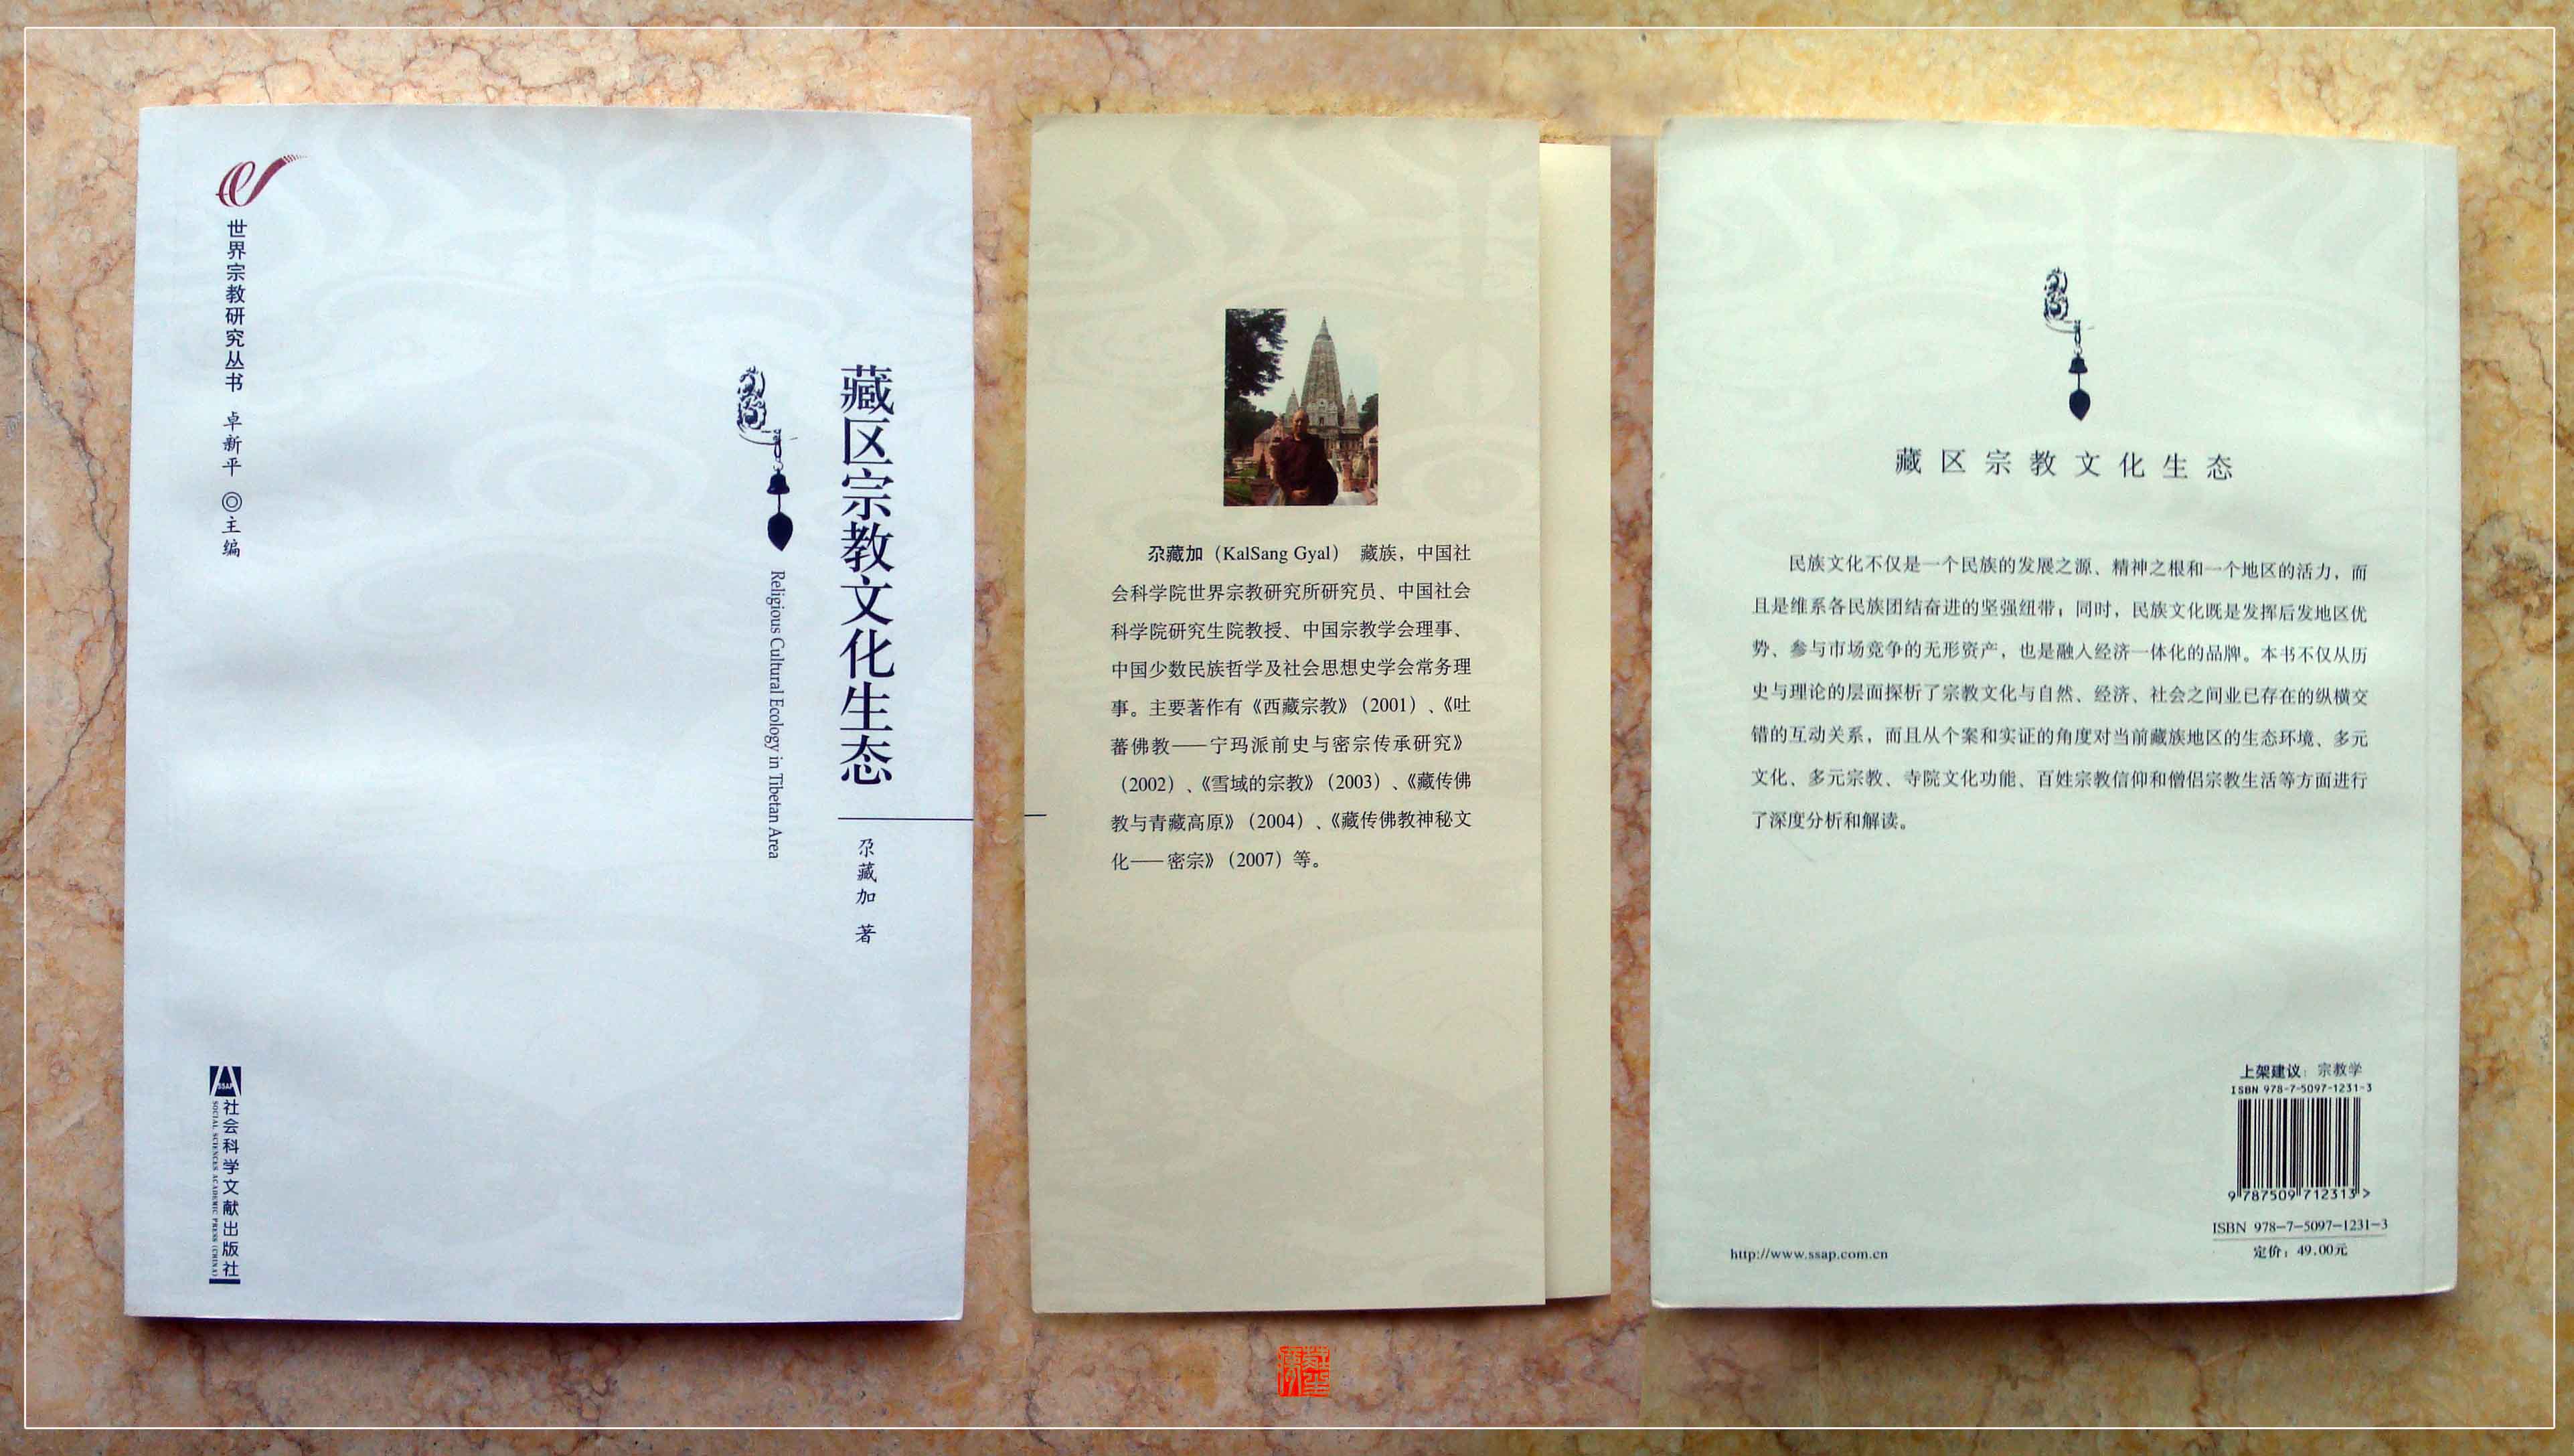 世界宗教研究丛书 卓新平 ◎主编
藏区宗教文化生态
Religious Cultural Ecology in Tibetan Area
尕藏加 著
SSAP
社会科学文献出版社
SOCIAL SCIENCES ACADEMIC PRESS (CHINA)
尕藏加（KalSang Gyal） 藏族，中国社
会科学院世界宗教研究所研究员、中国社会
科学院研究生院教授、中国宗教学会理事、
中国少数民族哲学及社会思想史学会常务理
事。主要著作有《西藏宗教》（2001）、《吐
蕃佛教——宁玛派前史与密宗传承研究》
（2002）、《雪域的宗教》（2003）、《藏传佛
教与青藏高原》（2004）、《藏传佛教神秘文
化——密宗》（2007）等。
藏区宗教文化生态
民族文化不仅是一个民族的发展之源、精神之根和一个地区的活力，而
且是维系各民族团结奋进的坚强纽带；同时，民族文化既是发挥后发地区优
势、参与市场竞争的无形资产，也是融入经济一体化的品牌。本书不仅从历
史与理论的层面探析了宗教文化与自然、经济、社会之间业已存在的纵横交
错的互动关系，而且从个案和实证的角度对当前藏族地区的生态环境、多元
文化、多元宗教、寺院文化功能、百姓宗教信仰和僧侣宗教生活等方面进行
了深度分析和解读。
上架建议：宗教学
ISBN 978-7-5097-1231-3
9 787509 712313 >
ISBN 978-7-5097-1231-3
定价：49.00元
http://www.ssap.com.cn